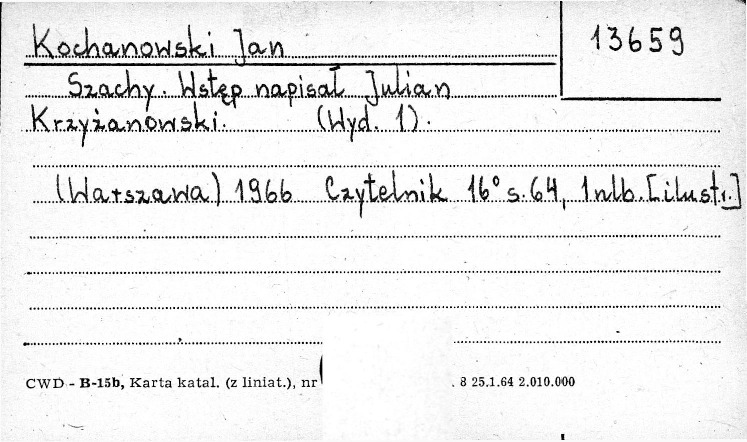 Kochanowski Jan 13659
Szachy. Wstęp napisał Julian
Krzyżanowski. (Wyd. 1).
(Warszawa) 1966 Czytelnik 16° s. 64, 1 nlb. [ilustr.]
CWD - B-15b, Karta katal. (z liniat.), nr . 8 25.1.64 2.010.000